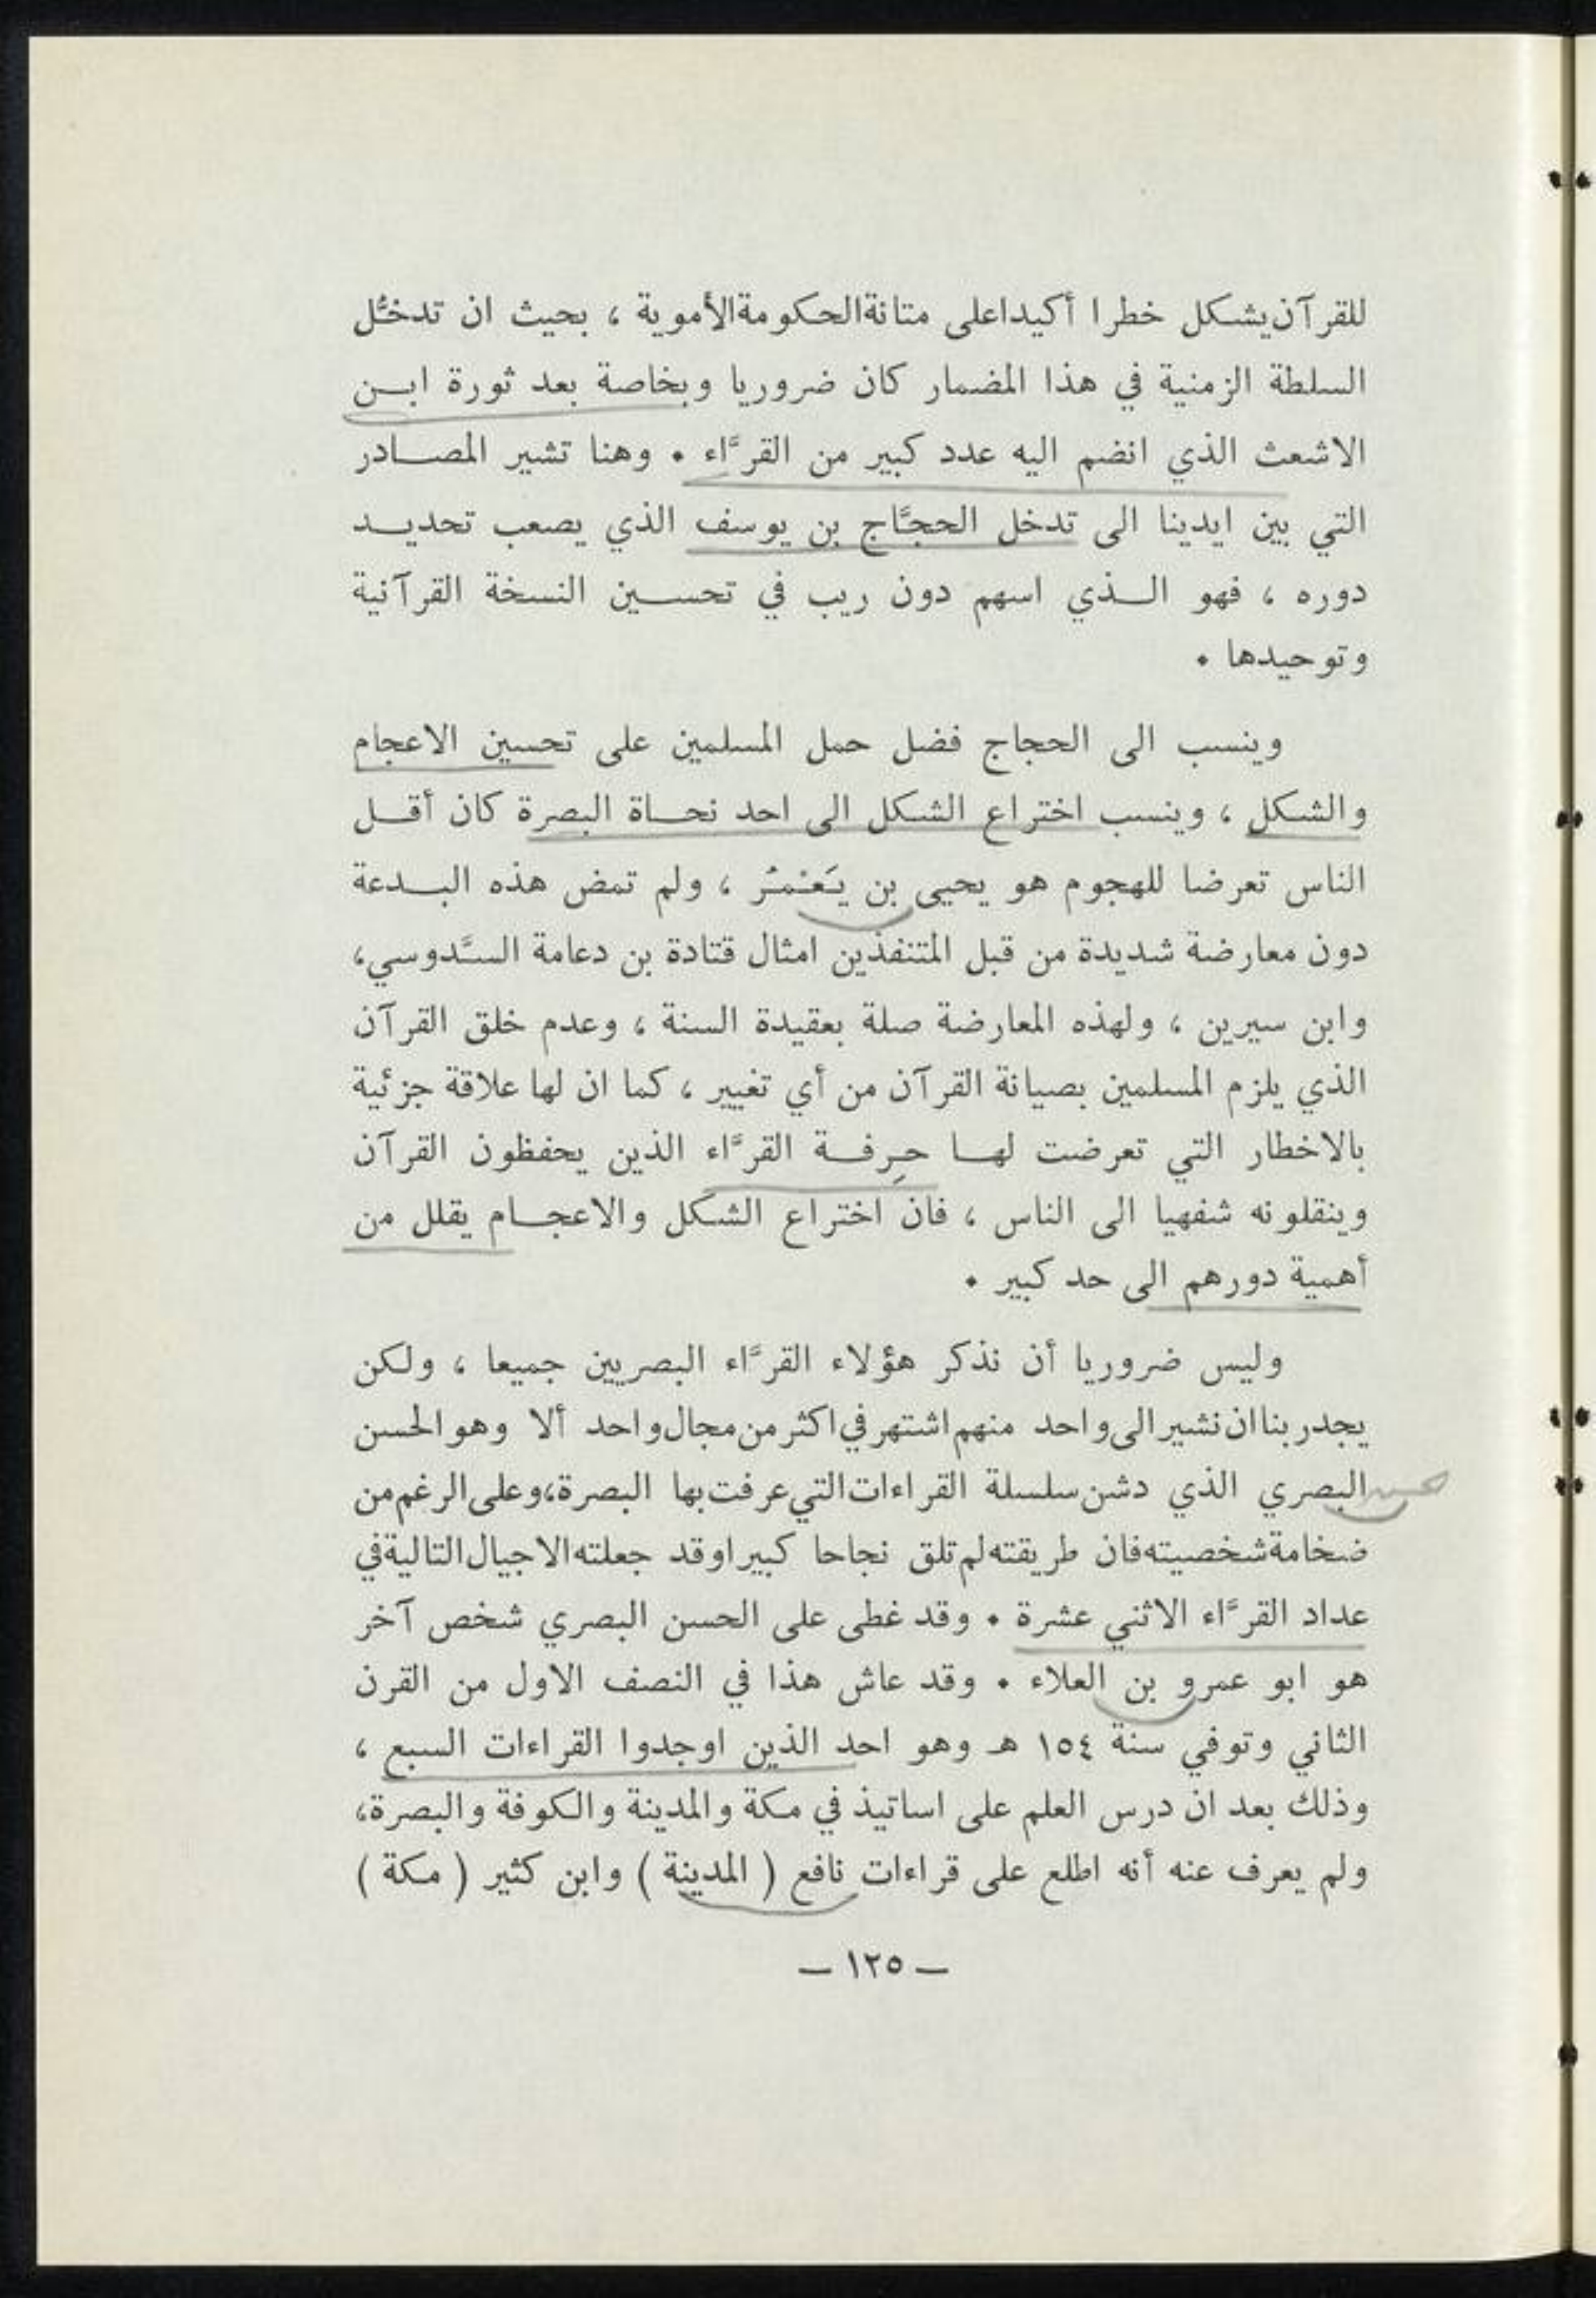 للقرآن يشكل خطرا أكيدا على متانة الحكومة الأموية ، بحيث ان تدخُّل
السلطة الزمنية في هذا المضمار كان ضروريا وبخاصة بعد ثورة ابن
الاشعث الذي انضم اليه عدد كبير من القرَّاء . وهنا تشير المصادر
التي بين ايدينا الى تدخل الحجَّاج بن يوسف الذي يصعب تحديد
دوره ، فهو الذي اسهم دون ريب في تحسين النسخة القرآنية
وتوحيدها .
وينسب الى الحجاج فضل حمل المسلمين على تحسين الاعجام
والشكل ، وينسب اختراع الشكل الى احد نحاة البصرة كان أقل
الناس تعرضا للهجوم هو يحيى بن يَعْمُر ، ولم تمض هذه البدعة
دون معارضة شديدة من قبل المتنفذين امثال قتادة بن دعامة السَّدوسي،
وابن سيرين ، ولهذه المعارضة صلة بعقيدة السنة ، وعدم خلق القرآن
الذي يلزم المسلمين بصيانة القرآن من أي تغيير ، كما ان لها علاقة جزئية
بالاخطار التي تعرضت لها حِرفة القرَّاء الذين يحفظون القرآن
وينقلونه شفهيا الى الناس ، فان اختراع الشكل والاعجام يقلل من
أهمية دورهم الى حد كبير .
وليس ضروريا أن نذكر هؤلاء القرَّاء البصريين جميعا ، ولكن
يجدر بنا ان نشير الى واحد منهم اشتهر في اكثر من مجال واحد ألا وهو الحسن
البصري الذي دشن سلسلة القراءات التي عرفت بها البصرة، وعلى الرغم من
ضخامة شخصيته فان طريقته لم تلق نجاحا كبيرا وقد جعلته الاجيال التالية في
عداد القرَّاء الاثني عشرة . وقد غطى على الحسن البصري شخص آخر
هو ابو عمرو بن العلاء . وقد عاش هذا في النصف الاول من القرن
الثاني وتوفي سنة ١٥٤ هـ وهو احد الذين اوجدوا القراءات السبع ،
وذلك بعد ان درس العلم على اساتيذ في مكة والمدينة والكوفة والبصرة،
ولم يعرف عنه أنه اطلع على قراءات نافع ( المدينة ) وابن كثير ( مكة )
— ١٢٥ —